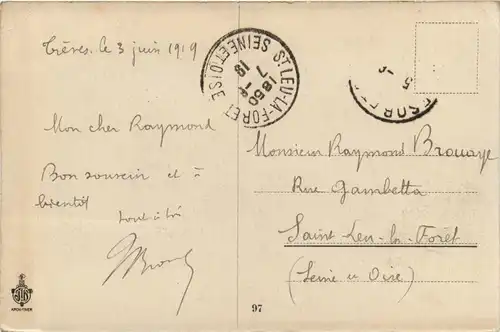 Trèves, le 3 juin 1919
Mon cher Raymond
Bon souvenir et à
bientôt
tout à toi
ST LEU-LA-FORET
SEINE ET OISE
Monsieur Raymond Brouaye
Rue Gambetta
Saint Leu la Forêt
(Seine et Oise)
97